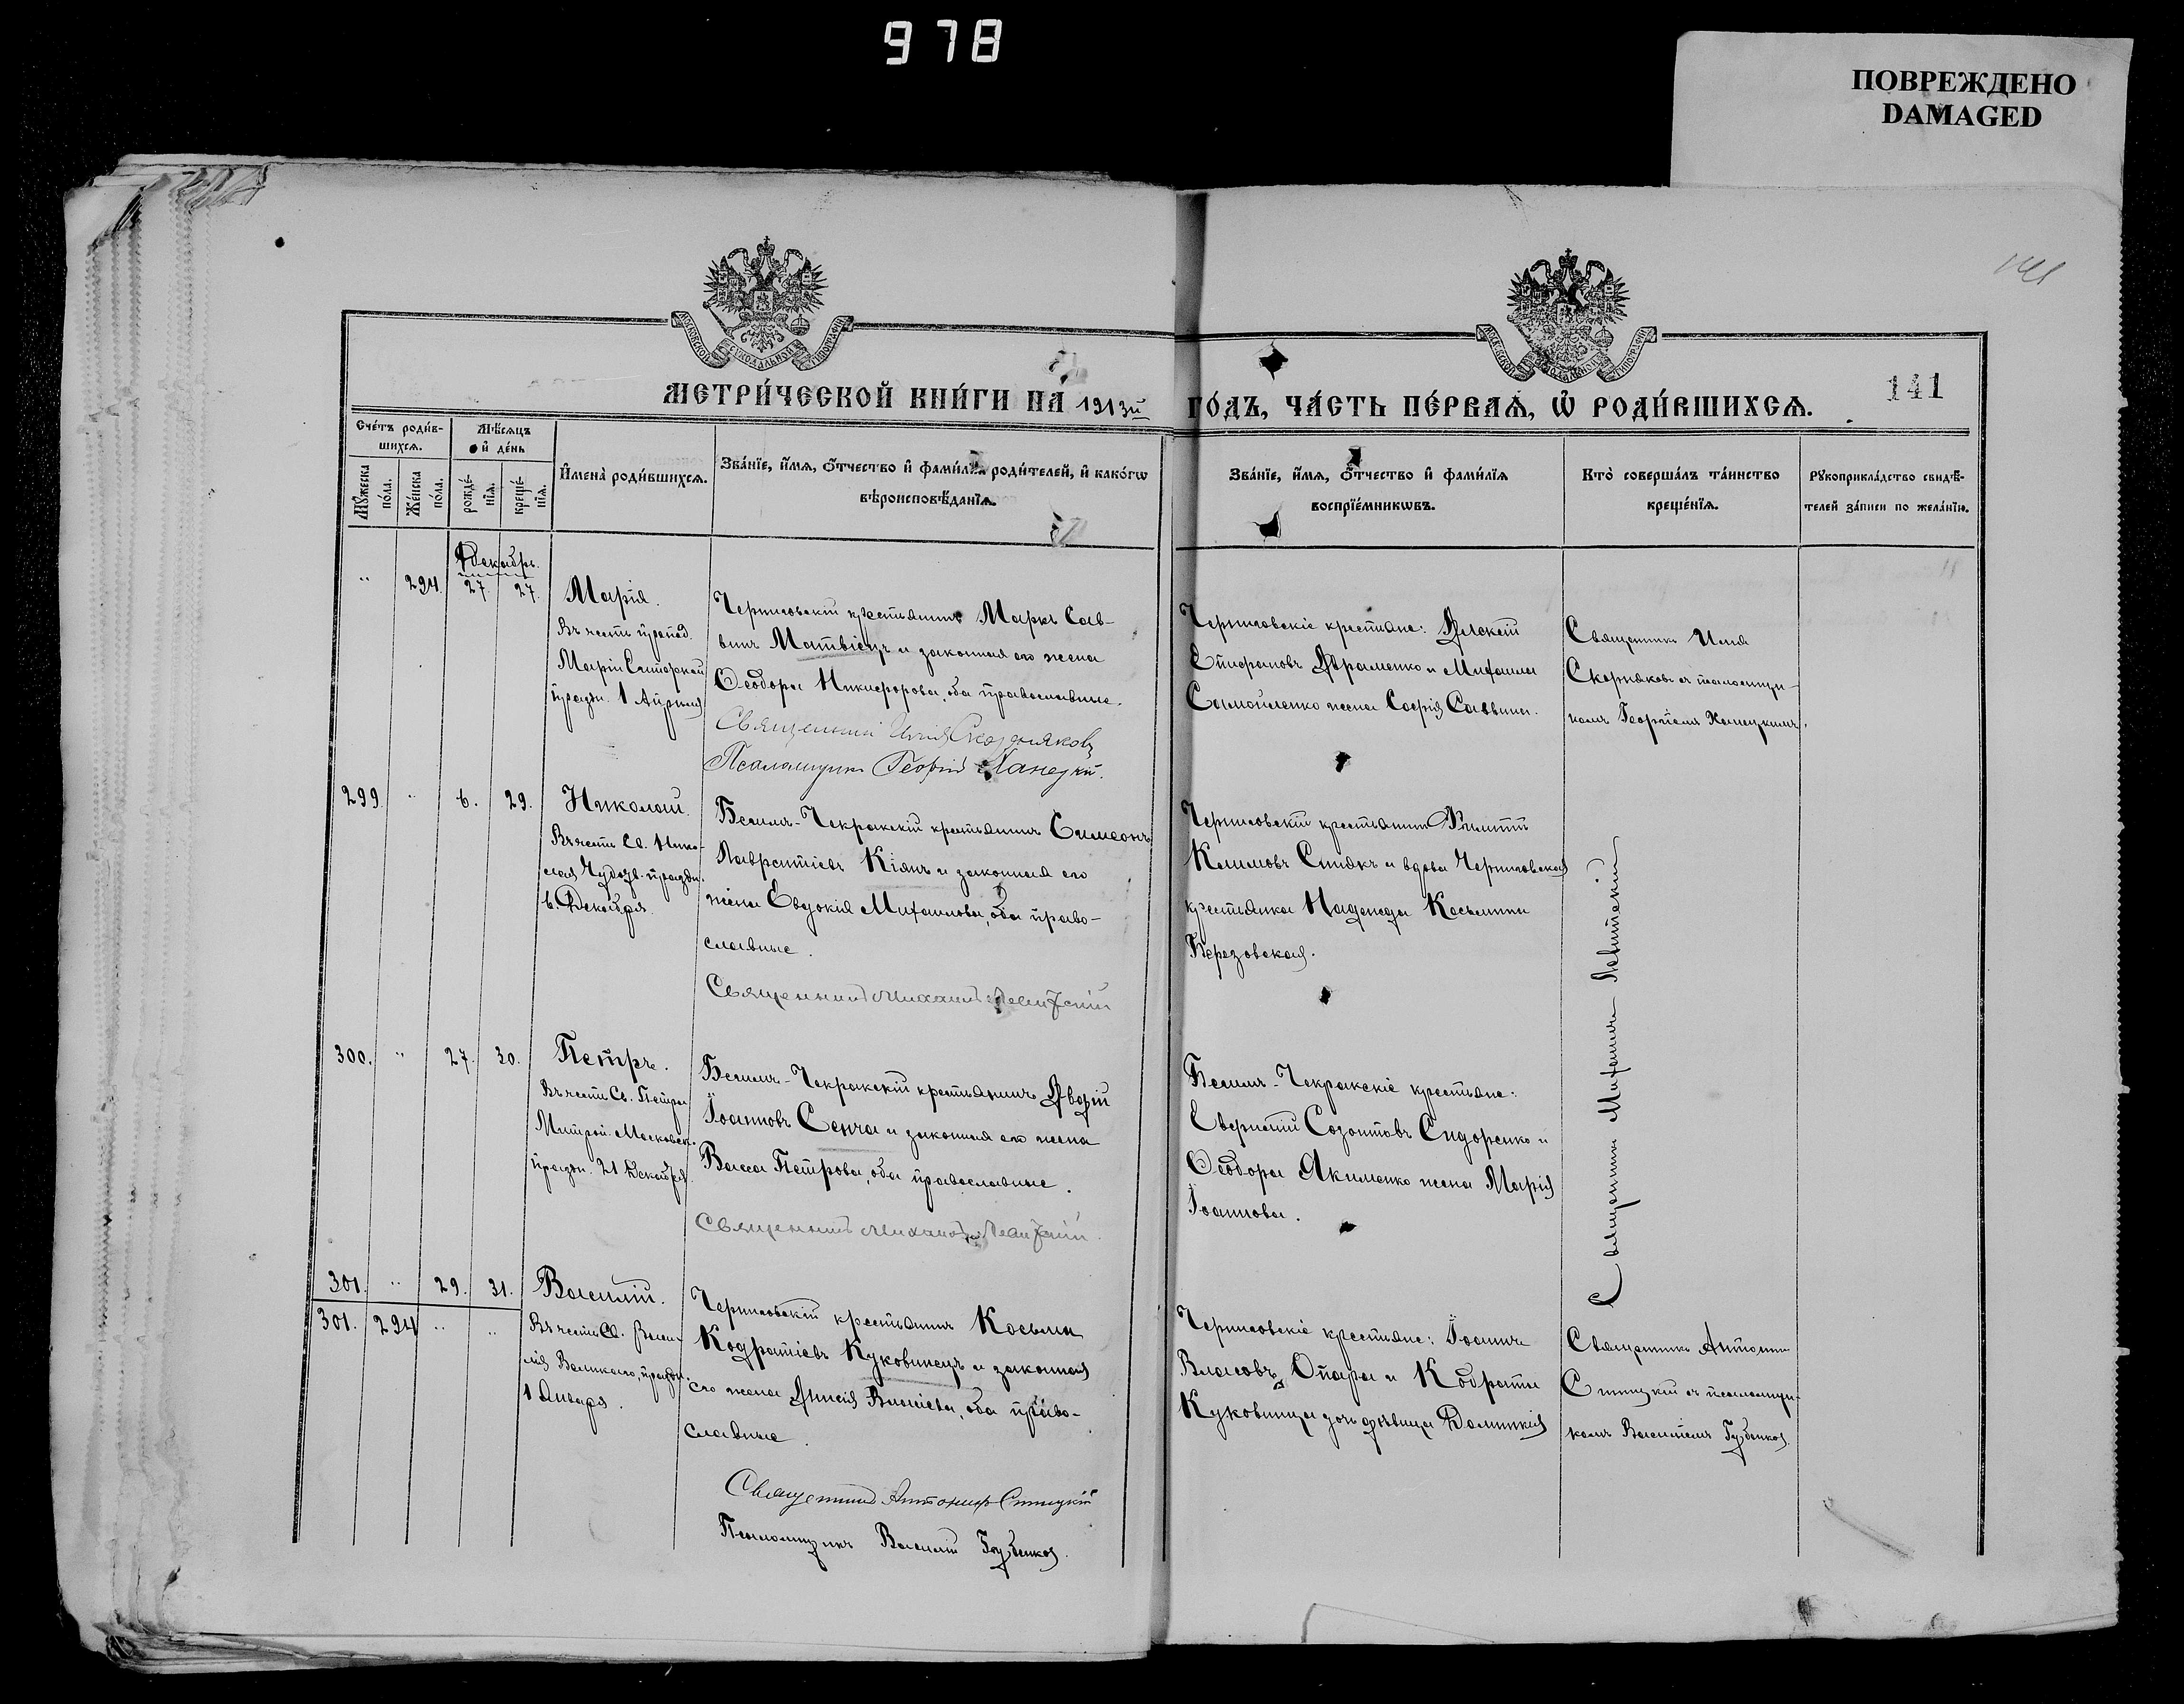 978
ПОВРЕЖДЕНО
DAMAGED
141
МЕТРИ́ЧЕСКОЙ КНИ́ГИ НА́ 1913й ГО́ДЪ, ЧА́СТЬ ПЕ́РВАѦ, Ѡ҆ РОДИ́ВШИХСѦ.
141
Сче́тъ роди́в-
шихсѧ.
Мѣ́сѧцъ
и҆ де́нь
Мꙋ́жеска
по́ла.
Же́нска
по́ла.
рожде́-
нїѧ.
креще́-
нїѧ.
И҆мена̀ роди́вшихсѧ.
Зва́нїе, и҆́мѧ, ѻ҆́тчество и҆ фами́лїѧ роди́телей, и҆ како́гѡ
вѣроисповѣ́данїѧ.
Зва́нїе, и҆́мѧ, ѻ҆́тчество и҆ фами́лїѧ
воспрїе́мникѡвъ.
Кто̀ соверша́лъ та́инство
креще́нїѧ.
Рꙋкоприкла́дство свидѣ́-
телей за́писи по жела́нїю.
Декабрь.
" 294. 27. 27. Марія.
Въ честь препод.
Маріи Египетской
празд. 1 Апреля
Черниговскій крестьянинъ Маркъ Сав-
винъ Матвіецъ и законная его жена
Ѳеодора Никифорова, оба православные.
Священникъ Илія Скорняковъ
Псаломщикъ Георгій Ханецкій.
Черниговскіе крестьяне: Алексій
Епифановъ Авраменко и Михаила
Самойленко жена Софія Саввина.
Священникъ Илія
Скорняковъ съ псаломщи-
комъ Георгіемъ Ханецкимъ.
299. " 6. 29. Николай.
Въ честь Св. Нико-
лая Чудотв. праздн.
6. Декабря.
Бегимъ-Чекракскій крестьянинъ Симеонъ
Лаврентіевъ Кіянъ и законная его
жена Евдокія Михайлова, оба право-
славные.
Священникъ Михаилъ Левитскій
Черниговскій крестьянинъ Филиппъ
Климовъ Спиякъ и вдова Черниговская
крестьянка Надежда Косьмина
Березовская.
Священникъ Михаилъ Левитскій
300. " 27. 30. Петръ.
Въ честь Св. Петра
Митроп. Московск.
праздн. 21 Декабря.
Бегимъ-Чекракскій крестьянинъ Авдій
Іоанновъ Сенча и законная его жена
Васса Петрова, оба православные.
Священникъ Михаилъ Левитскій.
Бегимъ-Чекракскіе крестьяне:
Созонтовъ Сидоренко и
Ѳеодора Акименко жена Марія
Іоаннова.
301. " 29. 31. Василій.
301. 294 " "
Въ честь Св. Васи-
лія Великаго, праздн.
1 Января.
Черниговскій крестьянинъ Косьма
Кодратіевъ Куковинецъ и законная
его жена Анисія Власіева, оба право-
славные.
Священникъ Антоній Спицкій
Псаломщикъ Василій
Черниговскіе крестьяне: Іоаннъ
Власовъ Опара и Кодрата
Куковинца дочь дѣвица Домникія
Священникъ Антоній
Спицкій съ псаломщи-
комъ Василіемъ